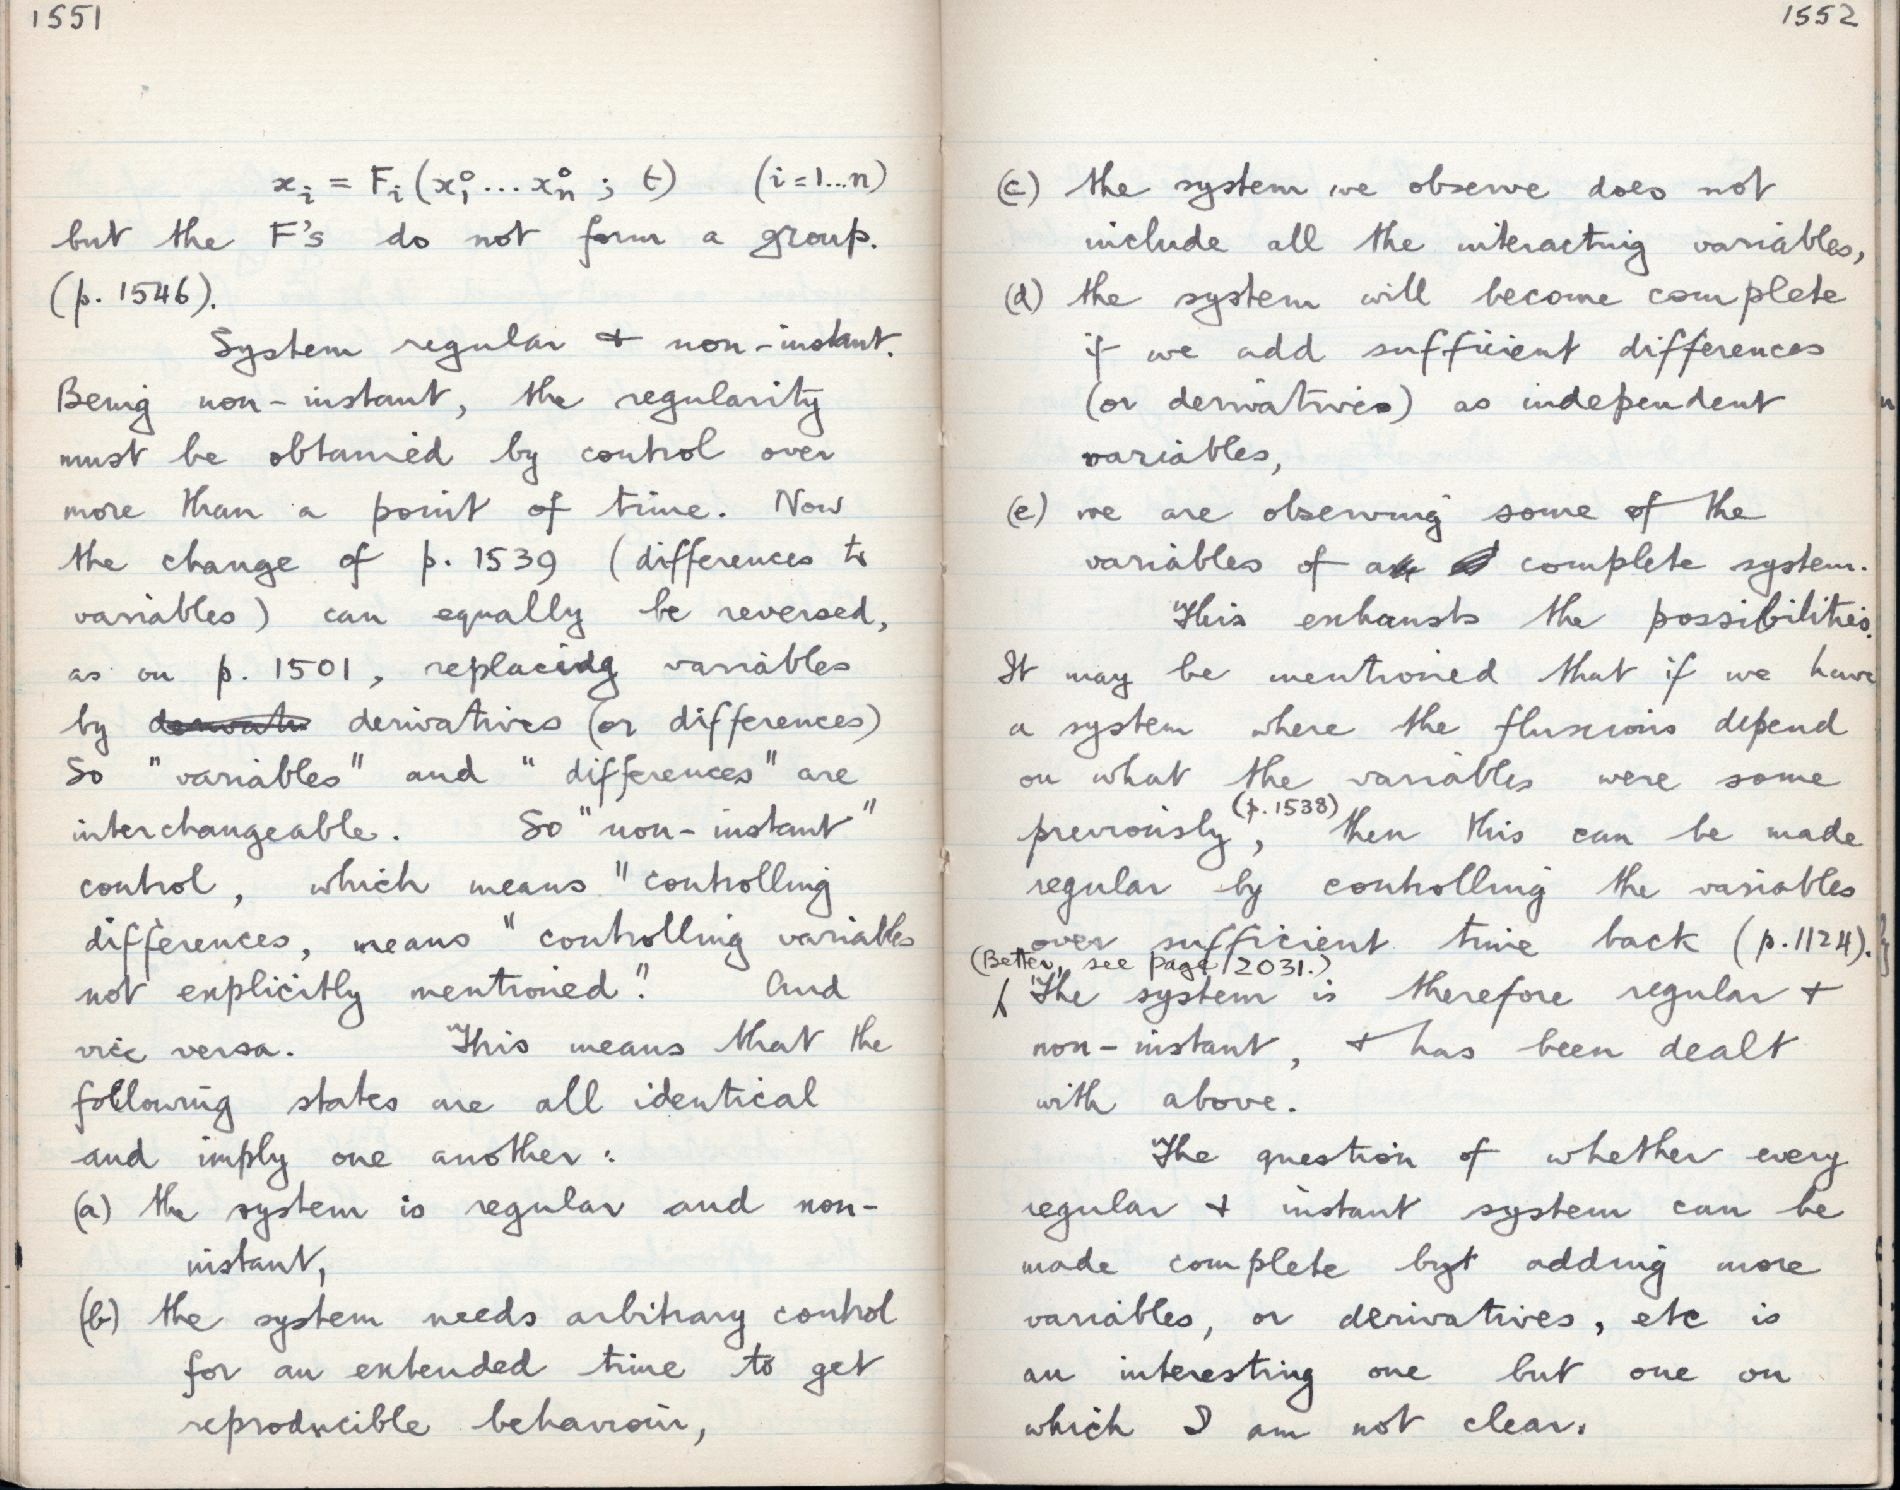 1551
x_i = F_i (x_1° ... x_n° ; t) (i = 1...n)
but the F's do not form a group.
(p. 1546).
System regular & non-instant.
Being non-instant, the regularity
must be obtained by control over
more than a point of time. Now
the change of p. 1539 (differences to
variables) can equally be reversed,
as on p. 1501, replacing variables
by derivatives (or differences)
So "variables" and "differences" are
interchangeable. So "non-instant"
control, which means "controlling
differences, means "controlling variables
not explicitly mentioned". And
vice versa. This means that the
following states are all identical
and imply one another:
(a) the system is regular and non-
instant,
(b) the system needs arbitrary control
for an extended time to get
reproducible behaviour,
1552
(c) the system we observe does not
include all the interacting variables,
(d) the system will become complete
if we add sufficient differences
(or derivatives) as independent
variables,
(e) we are observing some of the
variables of a complete system.
This exhausts the possibilities.
It may be mentioned that if we have
a system where the fluxions depend
on what the variables were some
previously (p. 1538), then this can be made
regular by controlling the variables
over sufficient time back (p. 1124).
(Better, see page 2031.)
The system is therefore regular &
non-instant, & has been dealt
with above.
The question of whether every
regular & instant system can be
made complete by adding more
variables, or derivatives, etc is
an interesting one but one on
which I am not clear.